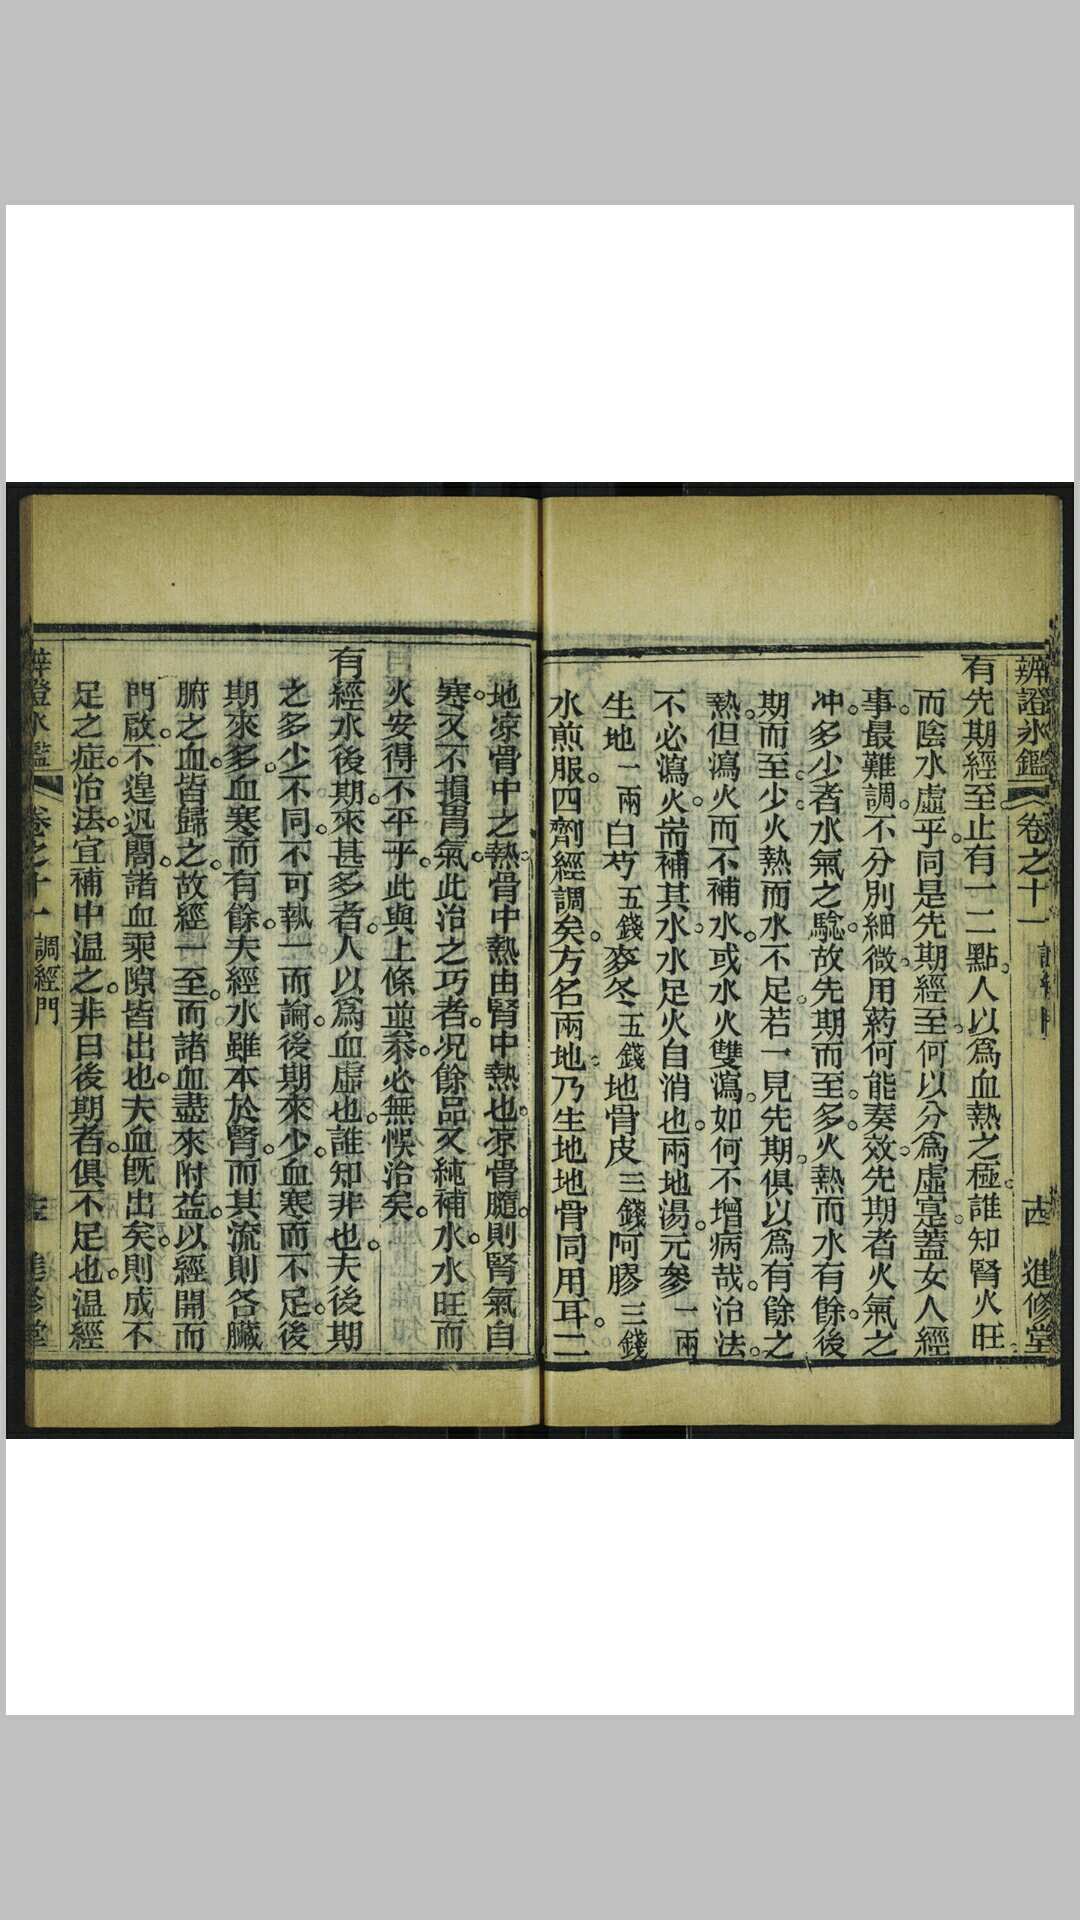 辨證氷鑑 卷之十一 進修堂
有先期經至止有一二點人以爲血熱之極誰知腎火旺
而陰水虛乎同是先期經至何以分爲虛寔蓋女人經
事最難調不分別細微用葯何能奏效先期者火氣之
冲多少者水氣之驗故先期而至多火熱而水有餘後
期而至少火熱而水不足若一見先期俱以爲有餘之
熱但瀉火而不補水或水火雙瀉如何不增病哉治法
不必瀉火耑補其水水足火自消也兩地湯元參一兩
生地一兩白芍五錢麥冬五錢地骨皮三錢阿膠三錢
水煎服四劑經調矣方名兩地乃生地地骨同用耳二
地凉骨中之熱骨中熱由腎中熱也凉骨髓則腎氣自
寒又不損胃氣此治之巧者况餘品又純補水水旺而
火安得不平乎此與上條並叅必無悞治矣
有經水後期來甚多者人以爲血虛也誰知非也夫後期
之多少不同不可執一而論後期來少血寒而不足後
期來多血寒而有餘夫經水雖本於腎而其流則各臟
腑之血皆歸之故經一至而諸血盡來附益以經開而
門啟不遑汎關諸血乘隙皆出也夫血既出矣則成不
足之症治法宜補中温之非曰後期者俱不足也温經
辨證氷鑑 卷之十一 調經門 進修堂